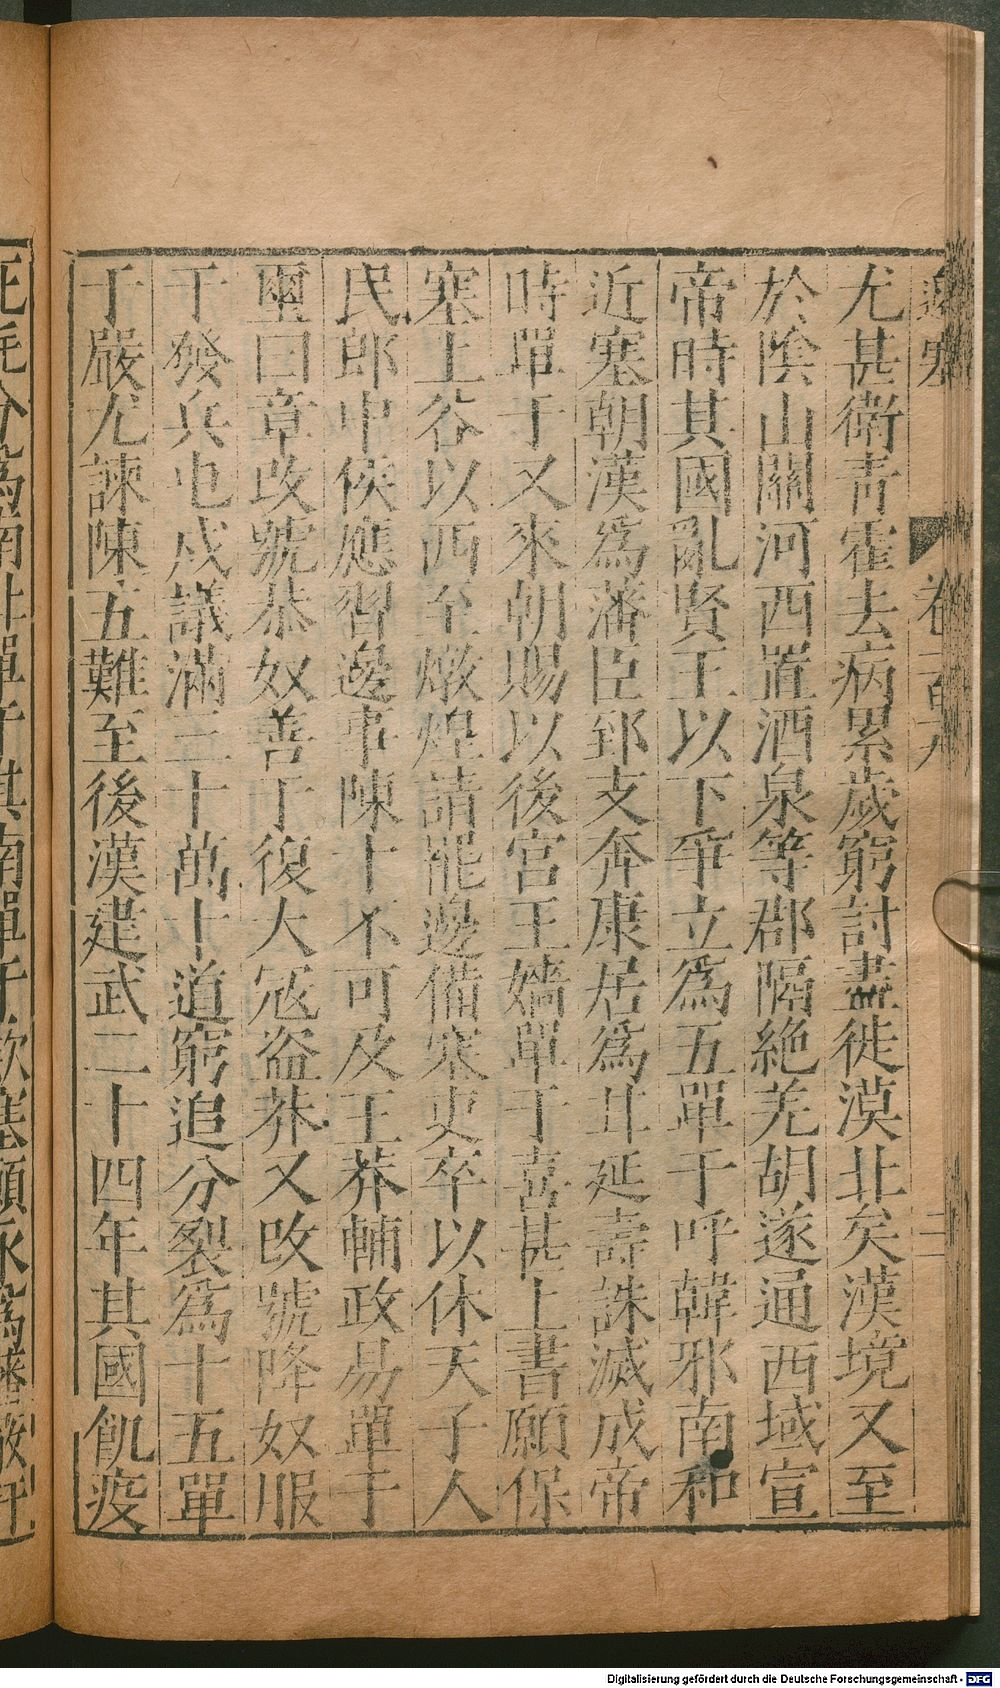 尤甚衛青霍去病累歲窮討盡徙漠北矣漢境又至
於陰山關河西置酒泉等郡隔絶羌胡遂通西域宣
帝時其國亂賢王以下爭立爲五單于呼韓邪南和
近塞朝漢爲藩臣郅支奔康居爲甘延壽誅滅成帝
時單于又來朝賜以後宮王嬙單于喜甚上書願保
塞上谷以西至燉煌請罷邊備塞吏卒以休天子人
民郎中侯應習邊事陳十不可及王莽輔政易單于
璽曰章改號恭奴善于復大寇盗莽又改號降奴服
于發兵屯戍議滿三十萬十道窮追分裂爲十五單
于嚴尤諫陳五難至後漢建武二十四年其國飢疫
死耗分爲南北單于其南單于款塞願永爲藩蔽扞
Digitalisierung gefördert durch die Deutsche Forschungsgemeinschaft - DFG